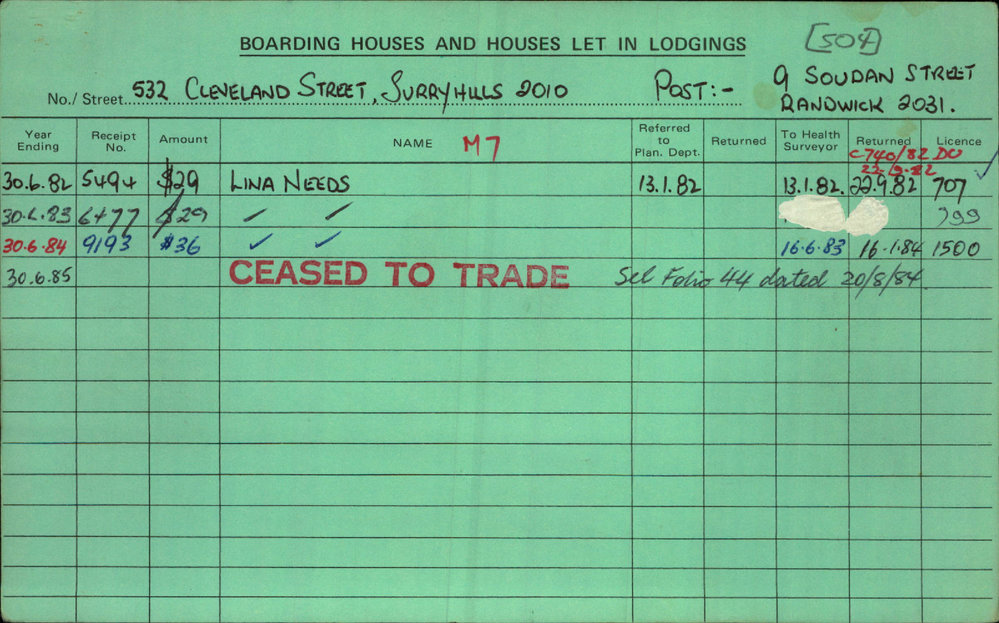 BOARDING HOUSES AND HOUSES LET IN LODGINGS [504]
No./ Street 532 CLEVELAND STREET, SURRY HILLS 2010 POST:- 9 SOUDAN STREET
RANDWICK 2031.
Year Ending Receipt No. Amount NAME M7 Referred to Plan. Dept. Returned To Health Surveyor Returned Licence
C740/82 DO
22.9.82
30.6.82 5494 $29 LINA NEEDS 13.1.82 13.1.82. 22.9.82 707 ✓
30.6.83 6477 $29 ✓ ✓ 799
30.6.84 9193 $36 ✓ ✓ 16.6.83 16.1.84 1500
30.6.85 CEASED TO TRADE See Folio 44 dated 20/8/84.